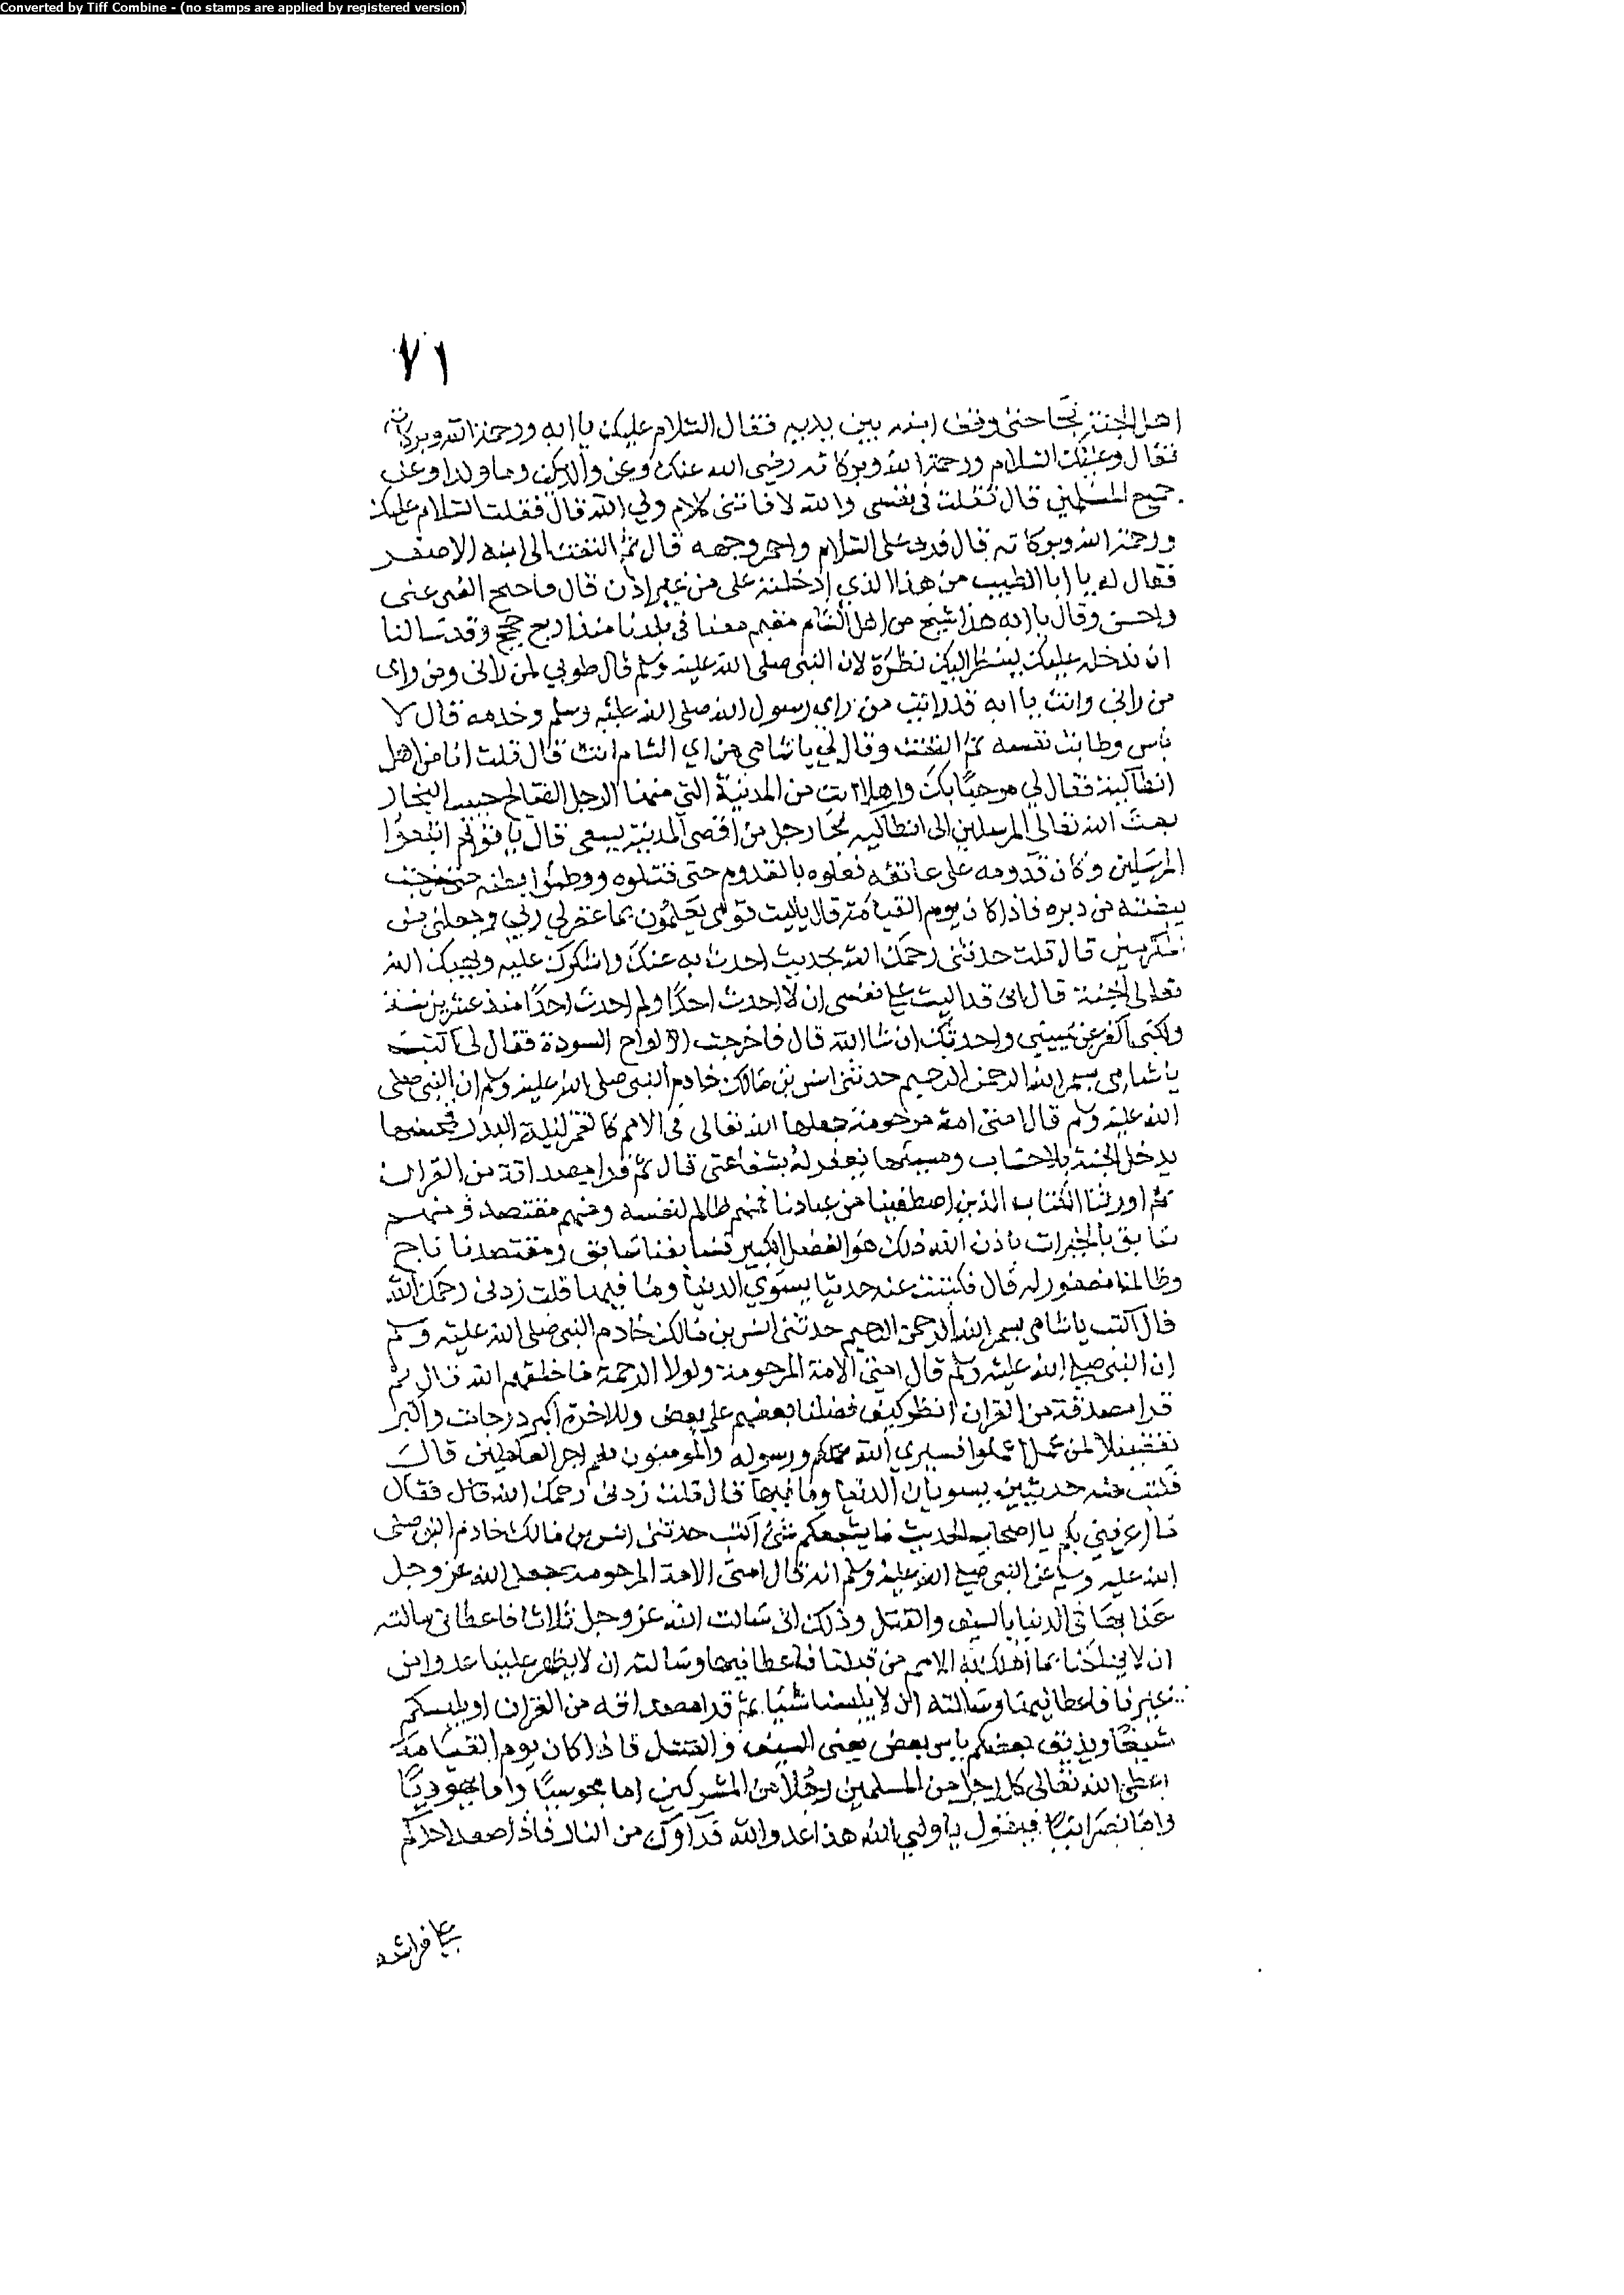 Converted by Tiff Combine - (no stamps are applied by registered version)
٧١
اهل الجنة فجا حتى وقف ابنه بين يديه فقال السلام عليك يا ابه ورحمة الله وبركاته
فقال وعليك السلام ورحمة الله وبركاته رضي الله عنك وعن والديك وما ولدا وعن
جميع المسلمين قال فقلت في نفسي والله لا فاتني كلام ولي الله قال فقلت السلام عليك
ورحمة الله وبركاته قال فرد علي السلام واحمر وجهه قال ثم التفت الى ابنه الاصغر
فقال له يا ابا الطيب من هذا الذي ادخلته علي من غير اذن قال فاحتج الفتى عني
واحسن وقال يا ابه هذا شيخ من اهل الشام مقيم معنا في بلدنا منذ اربع حجج وقد سالنا
ان ندخله عليك لينظر اليك نظرة لان النبي صلى الله عليه وسلم قال طوبي لمن راني ومن راى
من راني وانت يا ابه قد رايت من راى رسول الله صلى الله عليه وسلم وخدمه قال لا
باس وطابت نفسه ثم التفت وقال لي يا شامي من اي الشام انت قال قلت انا من اهل
انطاكية فقال لي مرحبًا بك واهلا انت من المدينة التي منها الرجل الصالح حبيب النجار
بعث الله تعالى المرسلين الى انطاكيه فجا رجل من اقصى المدينة يسعى قال يا قوم اتبعوا
المرسلين وكان قدومه على عاتقه فعلوه بالقدوم حتى قتلوه ووطئوا بطنه حتى خرجت
بيضته من دبره فاذا كان يوم القيامة قال ياليت قومي يعلمون بما غفر لي ربي وجعلني من
المكرمين قال قلت حدثني رحمك الله بحديث احدث به عنك واشكرك عليه ويجيبك الله
تعالى الجنة قال اني قد اليت على نفسي ان لا احدث احدًا ولم احدث احدًا منذ عشرين سنة
ولكني اكفر عن يميني واحدثك ان شا الله قال فاخرجت الالواح السودة فقال لي اكتب
يا شامي بسم الله الرحمن الرحيم حدثني انس بن مالك خادم النبي صلى الله عليه وسلم ان النبي صلى
الله عليه وسلم قال امتي امة مرحومة جعلها الله تعالى في الامم كالقمر ليلة البدر فمحسنها
يدخل الجنة بلا حساب ومسيئها يغفر له بشفاعتي قال ثم قرا مصداقة من القران
ثم اورثنا الكتاب الذين اصطفينا من عبادنا فمنهم ظالم لنفسه ومنهم مقتصد ومنهم
سابق بالخيرات باذن الله ذلك هو الفضل الكبير فسابقنا سابق ومقتصدنا ناج
وظالمنا مغفور له قال فكتبت عنه حديثا يسوي الدنيا وما فيها قلت زدني رحمك الله
قال اكتب يا شامي بسم الله الرحمن الرحيم حدثني انس بن مالك خادم النبي صلى الله عليه وسلم
ان النبي صلى الله عليه وسلم قال امتي الامة المرحومة ولولا الرحمة ما خلقهم الله قال ثم
قرا مصدقة من القران انظر كيف فضلنا بعضهم على بعض وللاخرة اكبر درجات واكبر
تفضيلا لمن عمل اعملوا فسيرى الله عملكم ورسوله والمومنون فنعم اجر العاملين قال
فكتبت عنه حديثين يسويان الدنيا وما فيها قال قلت زدني رحمك الله قال فقال
ما اعرفني بكم يا اصحاب الحديث ما يشبعكم شئ اكتب حدثني انس بن مالك خادم النبي صلى
الله عليه وسلم عن النبي صلى الله عليه وسلم انه قال امتي الامة المرحومة جعل الله عز وجل
عذابها في الدنيا بالسيف والقتل وذلك اني سالت الله عز وجل ثلاثا فاعطاني سالته
ان لا يهلكنا بما اهلك به الامم من قبلنا فاعطانيها وسالته ان لا يظهر علينا عدوا من
غيرنا فاعطانيها وسالته ان لا يلبسنا شيئا ثم قرا مصداقه من القران او يلبسكم
شيعًا ويذيق بعضكم باس بعض يعني السيف والقتل فاذا كان يوم القيامة
اعطى الله تعالى كل رجل من المسلمين رجلا من المشركين اما مجوسيًا واما يهوديًا
واما نصرانيًا فيقول يا ولي الله هذا عدو الله فداوك من النار فاذا صعد احدكم
على فراشه